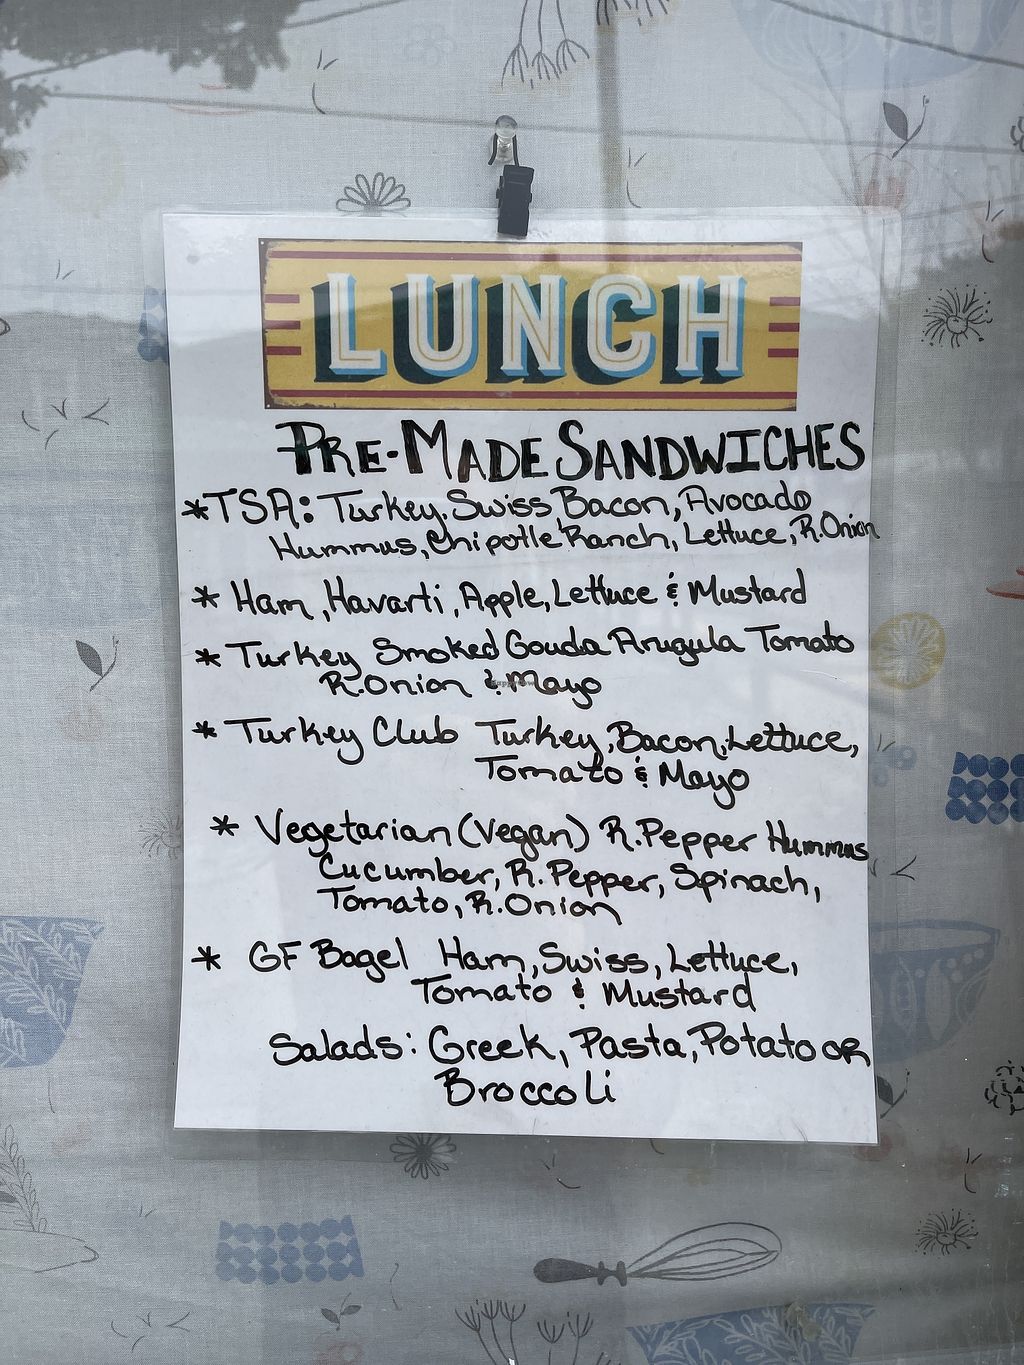 LUNCH
PRE-MADE SANDWICHES
*TSA: Turkey, Swiss, Bacon, Avocado
Hummus, Chipotle Ranch, Lettuce, R.Onion
* Ham, Havarti, Apple, Lettuce & Mustard
* Turkey Smoked Gouda Arugula Tomato
R.Onion & Mayo
* Turkey Club Turkey, Bacon, Lettuce,
Tomato & Mayo
* Vegetarian (Vegan) R.Pepper Hummus
Cucumber, R.Pepper, Spinach,
Tomato, R.Onion
* GF Bagel Ham, Swiss, Lettuce,
Tomato & Mustard
Salads: Greek, Pasta, Potato OR
Broccoli